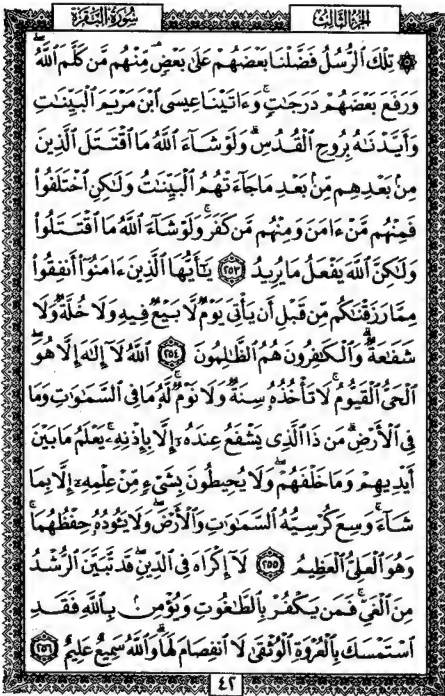 سُورَةُ البَقَرَةِ
الجُزْءُ الثَّالِثُ
۞ تِلْكَ ٱلرُّسُلُ فَضَّلْنَا بَعْضَهُمْ عَلَىٰ بَعْضٍ ۘ مِّنْهُم مَّن كَلَّمَ ٱللَّهُ ۖ
وَرَفَعَ بَعْضَهُمْ دَرَجَٰتٍ ۚ وَءَاتَيْنَا عِيسَى ٱبْنَ مَرْيَمَ ٱلْبَيِّنَٰتِ
وَأَيَّدْنَٰهُ بِرُوحِ ٱلْقُدُسِ ۗ وَلَوْ شَآءَ ٱللَّهُ مَا ٱقْتَتَلَ ٱلَّذِينَ
مِنۢ بَعْدِهِم مِّنۢ بَعْدِ مَا جَآءَتْهُمُ ٱلْبَيِّنَٰتُ وَلَٰكِنِ ٱخْتَلَفُوا۟
فَمِنْهُم مَّنْ ءَامَنَ وَمِنْهُم مَّن كَفَرَ ۚ وَلَوْ شَآءَ ٱللَّهُ مَا ٱقْتَتَلُوا۟
وَلَٰكِنَّ ٱللَّهَ يَفْعَلُ مَا يُرِيدُ ٢٥٣ يَٰٓأَيُّهَا ٱلَّذِينَ ءَامَنُوٓا۟ أَنفِقُوا۟
مِمَّا رَزَقْنَٰكُم مِّن قَبْلِ أَن يَأْتِىَ يَوْمٌ لَّا بَيْعٌ فِيهِ وَلَا خُلَّةٌ وَلَا
شَفَٰعَةٌ ۗ وَٱلْكَٰفِرُونَ هُمُ ٱلظَّٰلِمُونَ ٢٥٤ ٱللَّهُ لَآ إِلَٰهَ إِلَّا هُوَ
ٱلْحَىُّ ٱلْقَيُّومُ ۚ لَا تَأْخُذُهُۥ سِنَةٌ وَلَا نَوْمٌ ۚ لَّهُۥ مَا فِى ٱلسَّمَٰوَٰتِ وَمَا
فِى ٱلْأَرْضِ ۗ مَن ذَا ٱلَّذِى يَشْفَعُ عِندَهُۥٓ إِلَّا بِإِذْنِهِۦ ۚ يَعْلَمُ مَا بَيْنَ
أَيْدِيهِمْ وَمَا خَلْفَهُمْ ۖ وَلَا يُحِيطُونَ بِشَىْءٍ مِّنْ عِلْمِهِۦٓ إِلَّا بِمَا
شَآءَ ۚ وَسِعَ كُرْسِيُّهُ ٱلسَّمَٰوَٰتِ وَٱلْأَرْضَ ۖ وَلَا يَـُٔودُهُۥ حِفْظُهُمَا ۚ
وَهُوَ ٱلْعَلِىُّ ٱلْعَظِيمُ ٢٥٥ لَآ إِكْرَاهَ فِى ٱلدِّينِ ۖ قَد تَّبَيَّنَ ٱلرُّشْدُ
مِنَ ٱلْغَىِّ ۚ فَمَن يَكْفُرْ بِٱلطَّٰغُوتِ وَيُؤْمِنۢ بِٱللَّهِ فَقَدِ
ٱسْتَمْسَكَ بِٱلْعُرْوَةِ ٱلْوُثْقَىٰ لَا ٱنفِصَامَ لَهَا ۗ وَٱللَّهُ سَمِيعٌ عَلِيمٌ ٢٥٦
٤٢